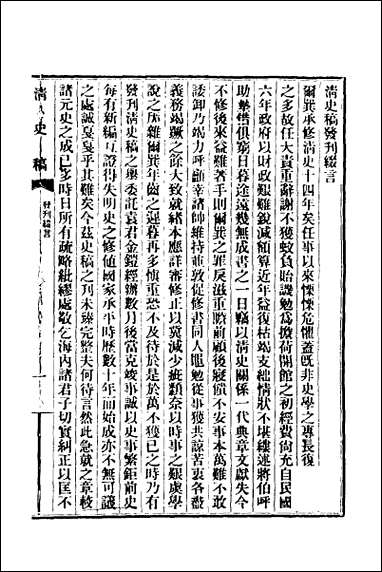 清史稿發刊綴言
爾巽承修清史十四年矣任事以來慄慄危懼蓋旣非史學之專長復
之多故任大責重辭謝不獲蚊負貽譏勉爲擔荷開館之初經費尙充自民國
六年政府以財政艱難銳減額算近年益復枯竭支絀情狀不堪縷述將伯呼
助墊借俱窮日暮途遠幾無成書之一日竊以清史關係一代典章文獻失今
不修後來益難著手則爾巽之罪戾滋重瞻前顧後寢饋不安事本萬難不敢
諉卸乃竭力呼籲幸諸帥維持並敦促修書同人黽勉從事獲共諒苦衷各盡
義務竭蹶之餘大致就緒本應詳審修正以冀減少疵纇奈以時事之艱虞學
說之厖雜爾巽年齒之遲暮再多慎重恐不及待於是於萬不獲已之時乃有
發刊清史稿之舉委託袁君金鎧經辦數月後當克竣事誠以史事繁鉅前史
每有新編互證得失明史之修値國家承平時歷數十年而始成亦不無可議
之處誠戞戞乎其難矣今茲史稿之刊未臻完整夫何待言然此急就之章較
諸元史之成已多時日所有疏略紕繆處敬乞海內諸君子切實糾正以匡不
清史稿
發刊綴言